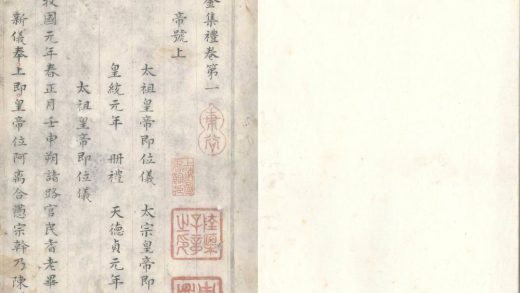 金集禮卷第一
帝號上
太祖皇帝即位儀　太宗皇帝即
皇統元年　冊禮　天德貞元年
太祖皇帝即位儀
收國元年春正月壬申朔諸路官民耆老畢
新儀奉上即皇帝位阿离合懣宗幹乃陳